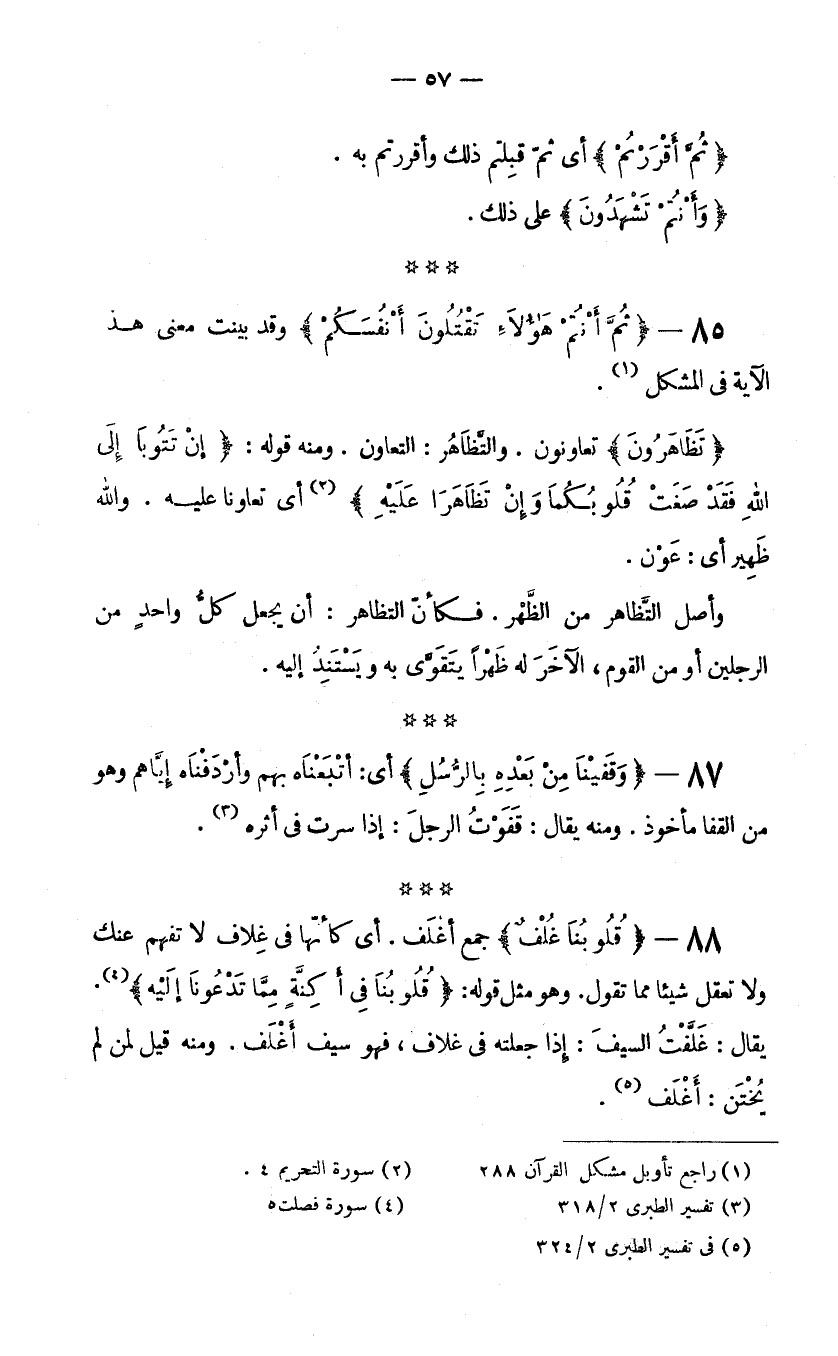 — ٥٧ —
﴿ ثُمَّ أَقْرَرْتُمْ ﴾ أى ثمّ قبِلتم ذلك وأقررتم به .
﴿ وَأَنْتُمْ تَشْهَدُونَ ﴾ على ذلك .
☆ ☆ ☆
٨٥ — ﴿ ثُمَّ أَنْتُمْ هَؤُلَاءِ تَقْتُلُونَ أَنْفُسَكُمْ ﴾ وقد بينت معنى هـذ
الآية فى المشكل (١) .
﴿ تَظَاهَرُونَ ﴾ تعاونون . والتَّظَاهُر : التعاون . ومنه قوله : ﴿ إِنْ تَتُوبَا إِلَى
اللهِ فَقَدْ صَغَتْ قُلُوبُكُمَا وَإِنْ تَظَاهَرَا عَلَيْهِ ﴾ (٢) أى تعاونا عليـه . والله
ظَهِير أى : عَوْن .
وأصل التَّظاهر من الظَّهْر . فـكأنّ التظاهر : أن يجعل كلُّ واحدٍ من
الرجلين أو من القوم ، الآخَرَ له ظَهْراً يتَقَوَّى به ويَسْتَنِدُ إليه .
☆ ☆ ☆
٨٧ — ﴿ وَقَفيْنَا مِنْ بَعْدِهِ بِالرُّسُلِ ﴾ أى: أتْبَعْنَاه بهم وأرْدَفْنَاه إيَّاهم وهو
من القفا مأخوذ . ومنه يقال : قَفَوْتُ الرجلَ : إذا سرت فى أثره (٣) .
☆ ☆ ☆
٨٨ — ﴿ قُلُوبُنَا غُلْفٌ ﴾ جمع أغلَف . أى كأنّها فى غِلاف لا تفهم عنك
ولا تعقل شيئا مما تقول. وهو مثل قوله: ﴿ قُلُوبُنَا فِى أَكِنَّةٍ مِمَّا تَدْعُونَا إِلَيْه ﴾(٤).
يقال : غَلَّفْتُ السيفَ : إِذا جعلته فى غلاف ، فهو سيف أَغْلَف . ومنه قيل لمن لم
يُخْتَن : أَغْلَف (٥) .
(١) راجع تأويل مشكل القرآن ٢٨٨ (٢) سورة التحريم ٤ .
(٣) تفسير الطبرى ٣١٨/٢ (٤) سورة فصلت ٥
(٥) فى تفسير الطبرى ٣٢٤/٢